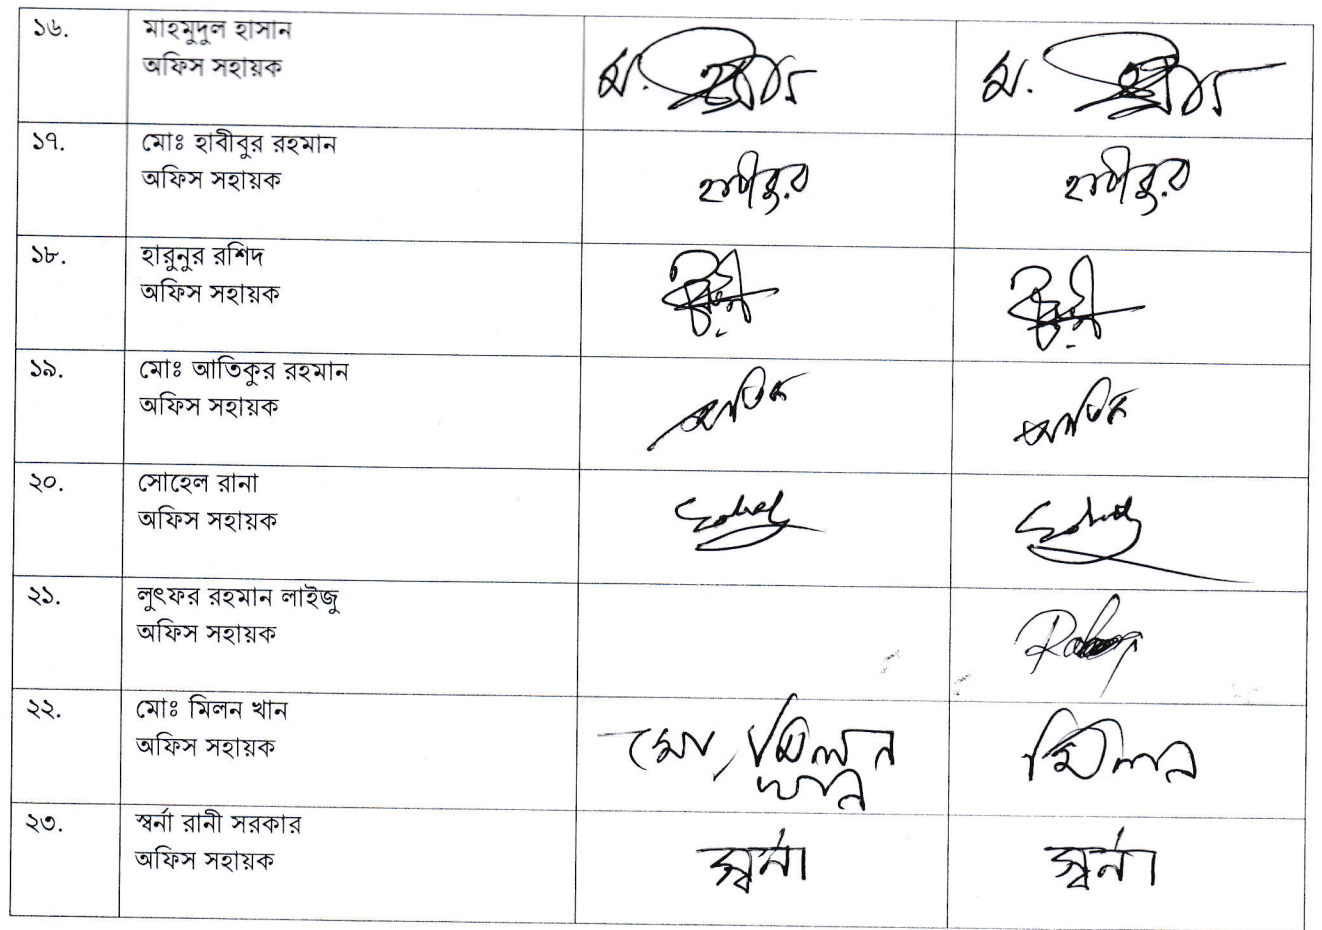 ১৬. মাহমুদুল হাসান
অফিস সহায়ক
১৭. মোঃ হাবীবুর রহমান
অফিস সহায়ক
হাবীবুর হাবীবুর
১৮. হারুনুর রশিদ
অফিস সহায়ক
১৯. মোঃ আতিকুর রহমান
অফিস সহায়ক
২০. সোহেল রানা
অফিস সহায়ক
২১. লুৎফর রহমান লাইজু
অফিস সহায়ক
২২. মোঃ মিলন খান
অফিস সহায়ক
মো, মিলন মিলন
খান
২৩. স্বর্না রানী সরকার
অফিস সহায়ক
স্বর্না স্বর্না